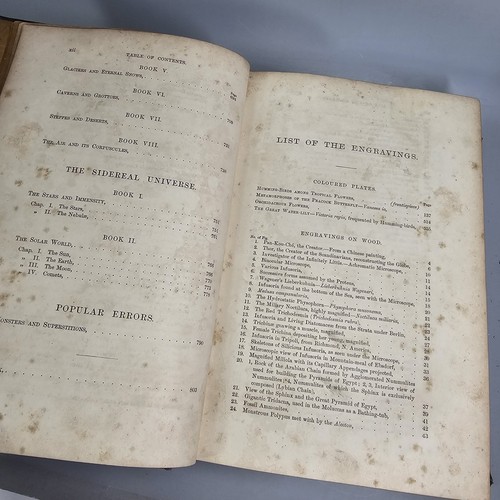 xii
TABLE OF CONTENTS.
BOOK V
GLACIERS AND ETERNAL SNOWS,
BOOK VI.
CAVERNS AND GROTTOES,
BOOK VII.
STEPPES AND DESERTS,
BOOK VIII.
THE AIR AND ITS CORPUSCULES,
THE SIDEREAL UNIVERSE.
BOOK I.
THE STARS AND IMMENSITY,
Chap. I. The Stars,
" II. The Nebulæ,
BOOK II.
THE SOLAR WORLD,
Chap. I. The Sun,
" II. The Earth,
" III. The Moon,
" IV. Comets,
POPULAR ERRORS.
MONSTERS AND SUPERSTITIONS,
790
803
LIST OF THE ENGRAVINGS.
COLOURED PLATES.
HUMMING-BIRDS AMONG TROPICAL FLOWERS, (frontispiece) Page
METAMORPHOSIS OF THE PEACOCK BUTTERFLY—Vanessa io, 137
ORCHIDACEOUS FLOWERS,
THE GREAT WATER-LILY—Victoria regia, frequented by Humming-birds,
ENGRAVINGS ON WOOD.
No. of Fig.
1. Pan-Kou-Ché, the Creator—From a Chinese painting,
2. Thor, the Creator of the Scandinavians, reconstructing the Globe,
3. Investigator of the Infinitely Little—Achromatic Microscope,
4. Binocular Microscope,
5. Various Infusoria,
6. Successive forms assumed by the Proteus,
7. Wagner's Lieberkuhnia—Lieberkuhnia Wagneri,
8. Infusoria found at the bottom of the sea, seen with the Microscope,
9. Medusa
10. The Hydrostatic Physophora—Physophora
11. The Miliary Noctiluca, highly magnified—Noctiluca miliaris,
12. The Red Trichodesmium
13. Infusoria and Living Diatomaceæ from the Strata under Berlin,
14. Trichinæ gnawing a muscle, magnified,
15. Female Trichina depositing her young, magnified,
16. Infusoria in Tripoli, from Richmond, N. America,
17. Skeletons of Silicious Infusoria, as seen under the Microscope,
18. Microscopic view of Infusoria in Mountain-meal of Ebsdorf,
19. Magnified Miliola with its Capillary Appendages projected,
20. 1, Rock of the Arabian Chain formed by Agglomerated Nummulites
used for building the Pyramids of Egypt; 2, 3, Interior view of
Nummulites; 4, Nummulites of which the Sphinx is exclusively
composed (Lybian Chain),
21. View of the Sphinx and the Great Pyramid of Egypt, 37
22. Gigantic Tridacna, used in the Moluccas as a Bathing-tub, 39
23. Fossil Ammonites, 41
24. Monstrous Polypus met with by the Alecton, 43